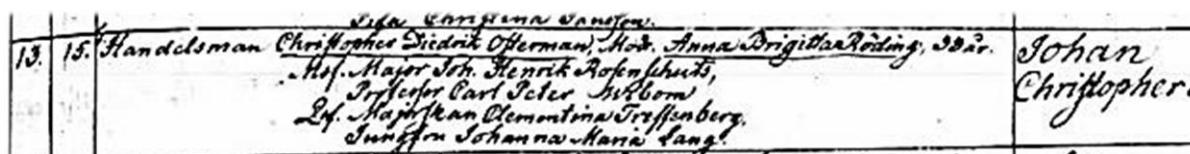 Lisa Christina Jansson.
13. 15. Handelsman Christopher Diedrik Osterman, Mod. Anna Brigitta Röding, 38 år. Johan
Msf. Major Joh. Henrik Rosenschütz, Christopher
Professor Carl Peter Wibom
Qsf. Majorskan Clementina Treffenberg.
Jungfru Johanna Maria Lang.